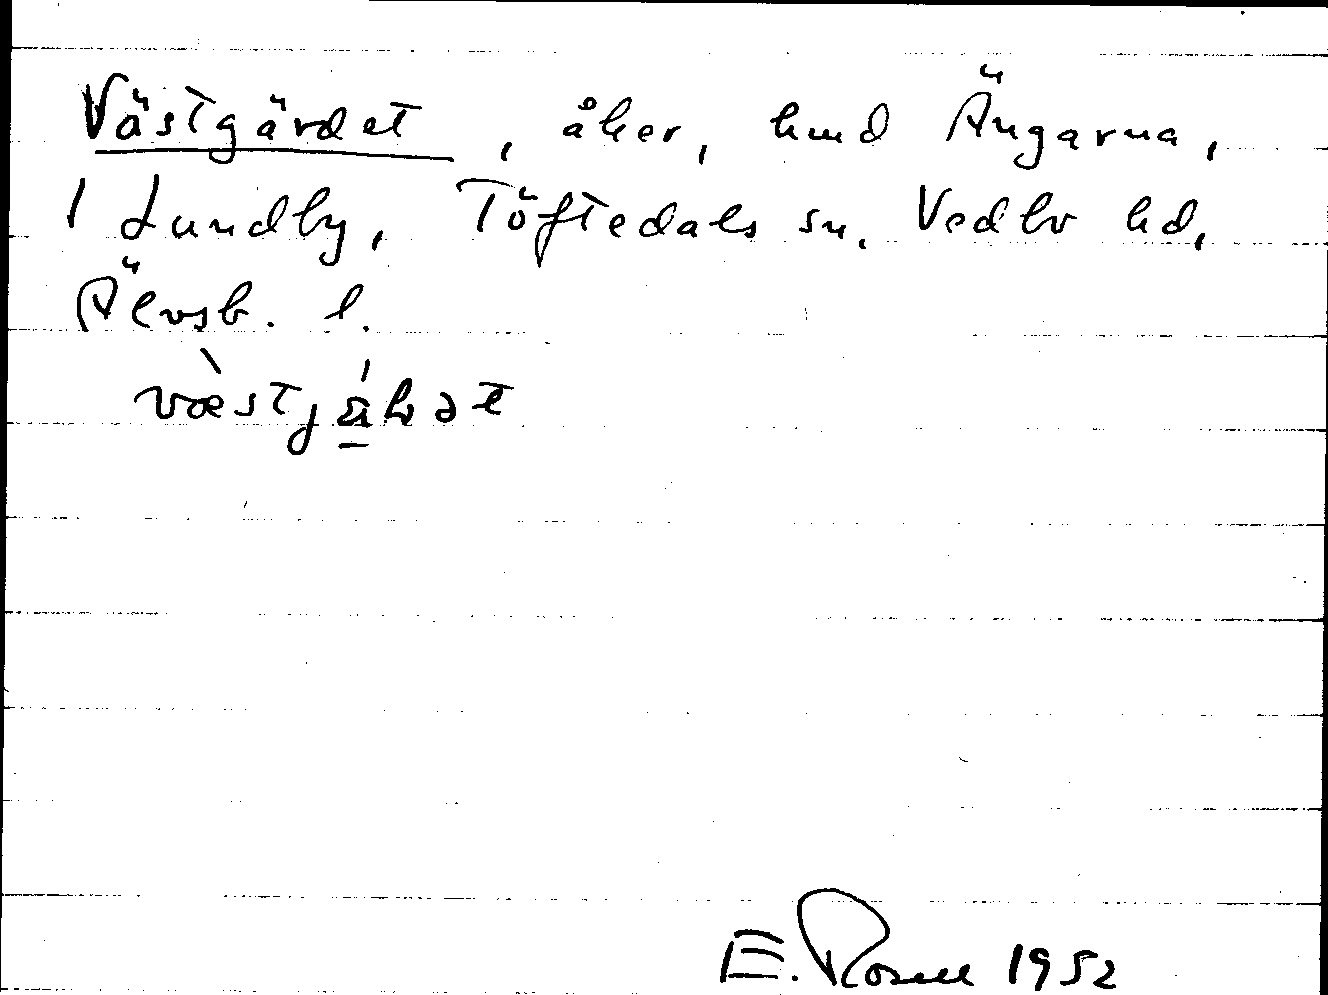 Västgärdet, åker, hmd Ängarna,
1 Lundby, Töftedals sn, Vedbo hd,
Älvsb. l.
E. Rosell 1952